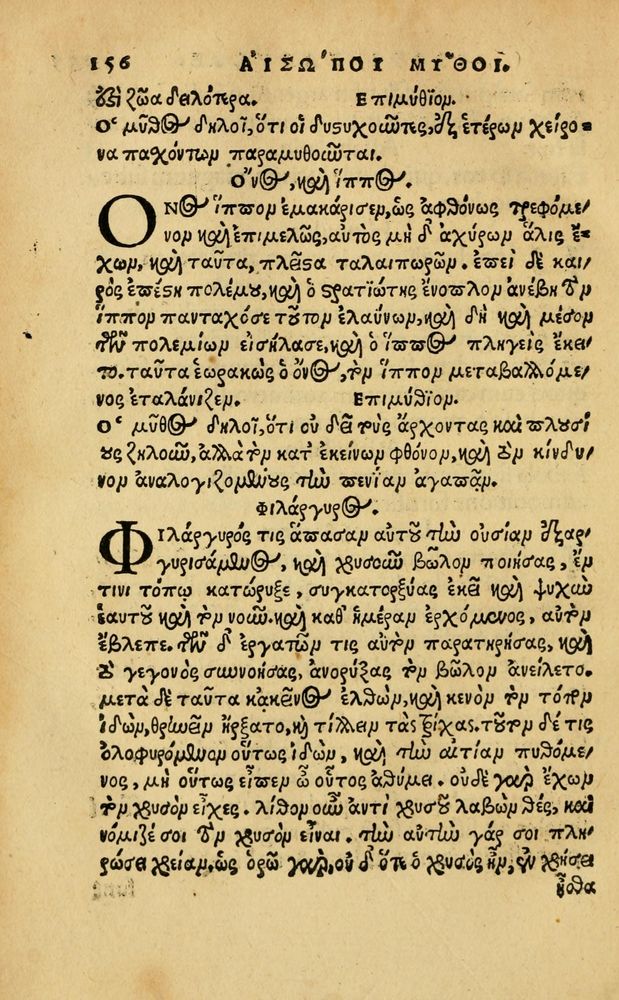 156 ΑΙΣΩ´ΠΟΥ ΜΥ͂ΘΟΙ.
ἐστὶ ζῶα δειλότερα. Επιμύθιον.
Ὁ μῦθος δηλοῖ, ὅτι οἱ δυστυχοῦντες, ἐξ ἑτέρων χείρο-
να παχόντων παραμυθοῦνται.
Ὄνος, καὶ ἵππος.
ΟΝος ἵππον ἐμακάρισεν, ὡς ἀφθόνως τρεφόμε-
νον καὶ ἐπιμελῶς, αὐτὸς μὴ δ' ἀχύρων ἅλις ἔ-
χων, καὶ ταῦτα, πλεῖστα ταλαιπωρῶν. ἐπεὶ δὲ και-
ρὸς ἐπέστη πολέμου, καὶ ὁ στρατιώτης ἔνοπλον ἀνέβη τὸν
ἵππον πανταχόσε τοῦτον ἐλαύνων, καὶ δὴ καὶ μέσον
τῶν πολεμίων εἰσήλασε, καὶ ὁ ἵππος πληγεὶς ἔκει-
το. ταῦτα ἑωρακὼς ὁ ὄνος, τὸν ἵππον μεταβαλλόμε-
νος ἐταλάνιζεν. Επιμύθιον.
Ὁ μῦθος δηλοῖ, ὅτι οὐ δεῖ τοὺς ἄρχοντας καὶ πλουσί-
ους ζηλοῦν, ἀλλὰ τὸν κατ' ἐκείνων φθόνον, καὶ τὸν κίνδυ-
νον ἀναλογιζομένους τὴν πενίαν ἀγαπᾶν.
Φιλάργυρος.
ΦΙλάργυρός τις ἅπασαν αὐτοῦ τὴν οὐσίαν ἐξαρ-
γυρισάμενος, καὶ χρυσοῦν βῶλον ποιήσας, ἔν
τινι τόπῳ κατώρυξε, συγκατορύξας ἐκεῖ καὶ ψυχὴν
ἑαυτοῦ καὶ τὸν νοῦν. καὶ καθ' ἡμέραν ἐρχόμενος, αὐτὸν
ἔβλεπε. τῶν δ' ἐργατῶν τις αὐτὸν παρατηρήσας, καὶ
τὸ γεγονὸς συννοήσας, ἀνορύξας τὸν βῶλον ἀνείλετο.
μετὰ δὲ ταῦτα κἀκεῖνος ἐλθὼν, καὶ κενὸν τὸν τόπον
ἰδὼν, θρηνεῖν ἤρξατο, καὶ τίλλειν τὰς τρίχας. τοῦτον δέ τις
ὀλοφυρόμενον οὕτως ἰδὼν, καὶ τὴν αἰτίαν πυθόμε-
νος, μὴ οὕτως εἶπεν ὦ οὗτος ἀθύμει. οὐδὲ γὰρ ἔχων
τὸν χρυσὸν εἶχες. λίθον οὖν ἀντὶ χρυσοῦ λαβὼν θὲς, καὶ
νόμιζέ σοι τὸν χρυσὸν εἶναι. τὴν αὐτὴν γάρ σοι πλη-
ρώσει χρείαν, ὡς ὁρῶ γὰρ, οὐ δ' ὅτε ὁ χρυσὸς ἦν, ἐν χρήσει
ἦσθα